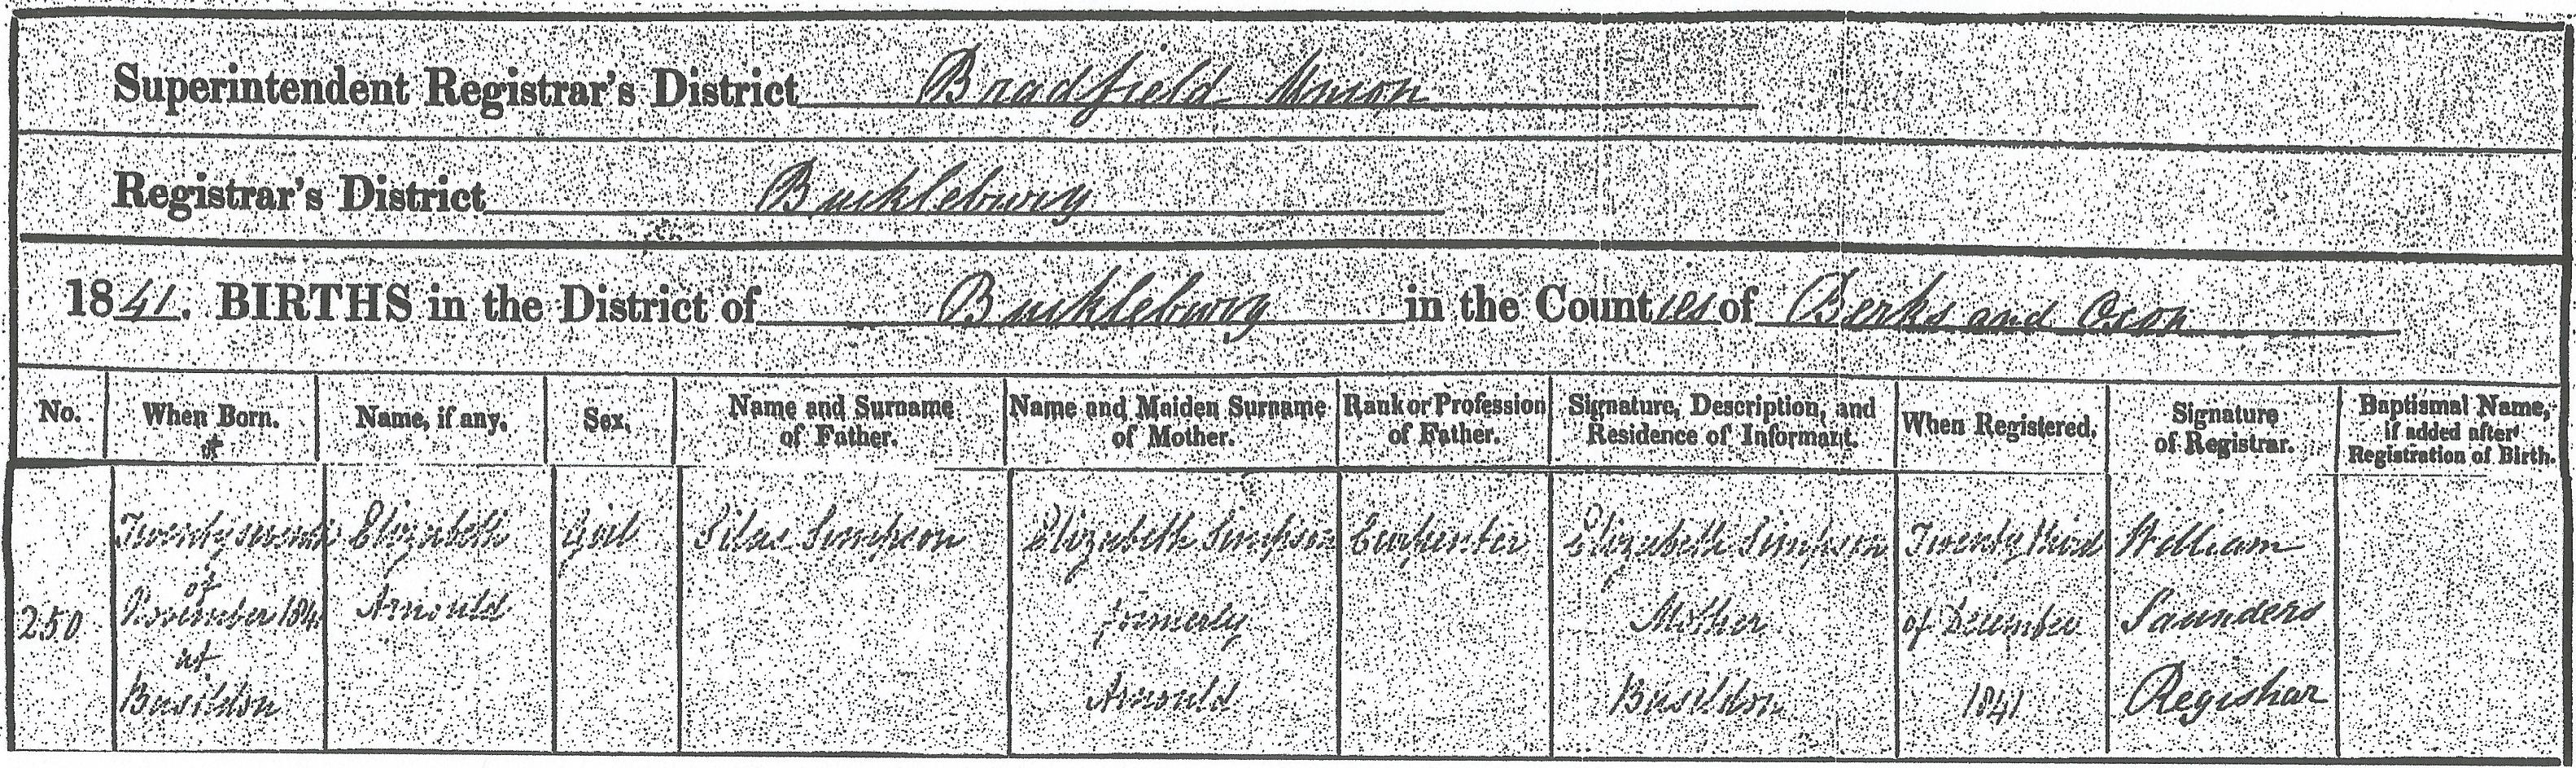 Superintendent Registrar's District Bradfield Union
Registrar's District Bucklebury
1841. BIRTHS in the District of Bucklebury in the Counties of Berks and Oxon
No.
When Born.
Name, if any.
Sex.
Name and Surname
of Father.
Name and Maiden Surname
of Mother.
Rank or Profession
of Father.
Signature, Description, and
Residence of Informant.
When Registered.
Signature
of Registrar.
Baptismal Name,
if added after
Registration of Birth.
250
Twenty seventh
of
November 184
at
Basildon
Elizabeth
Arnould
Girl
Silas Simpson
Elizabeth Simpson
formerly
Arnould
Carpenter
Elizabeth Simpson
Mother
Basildon
Twenty third
of December
1841
William
Saunders
Registrar